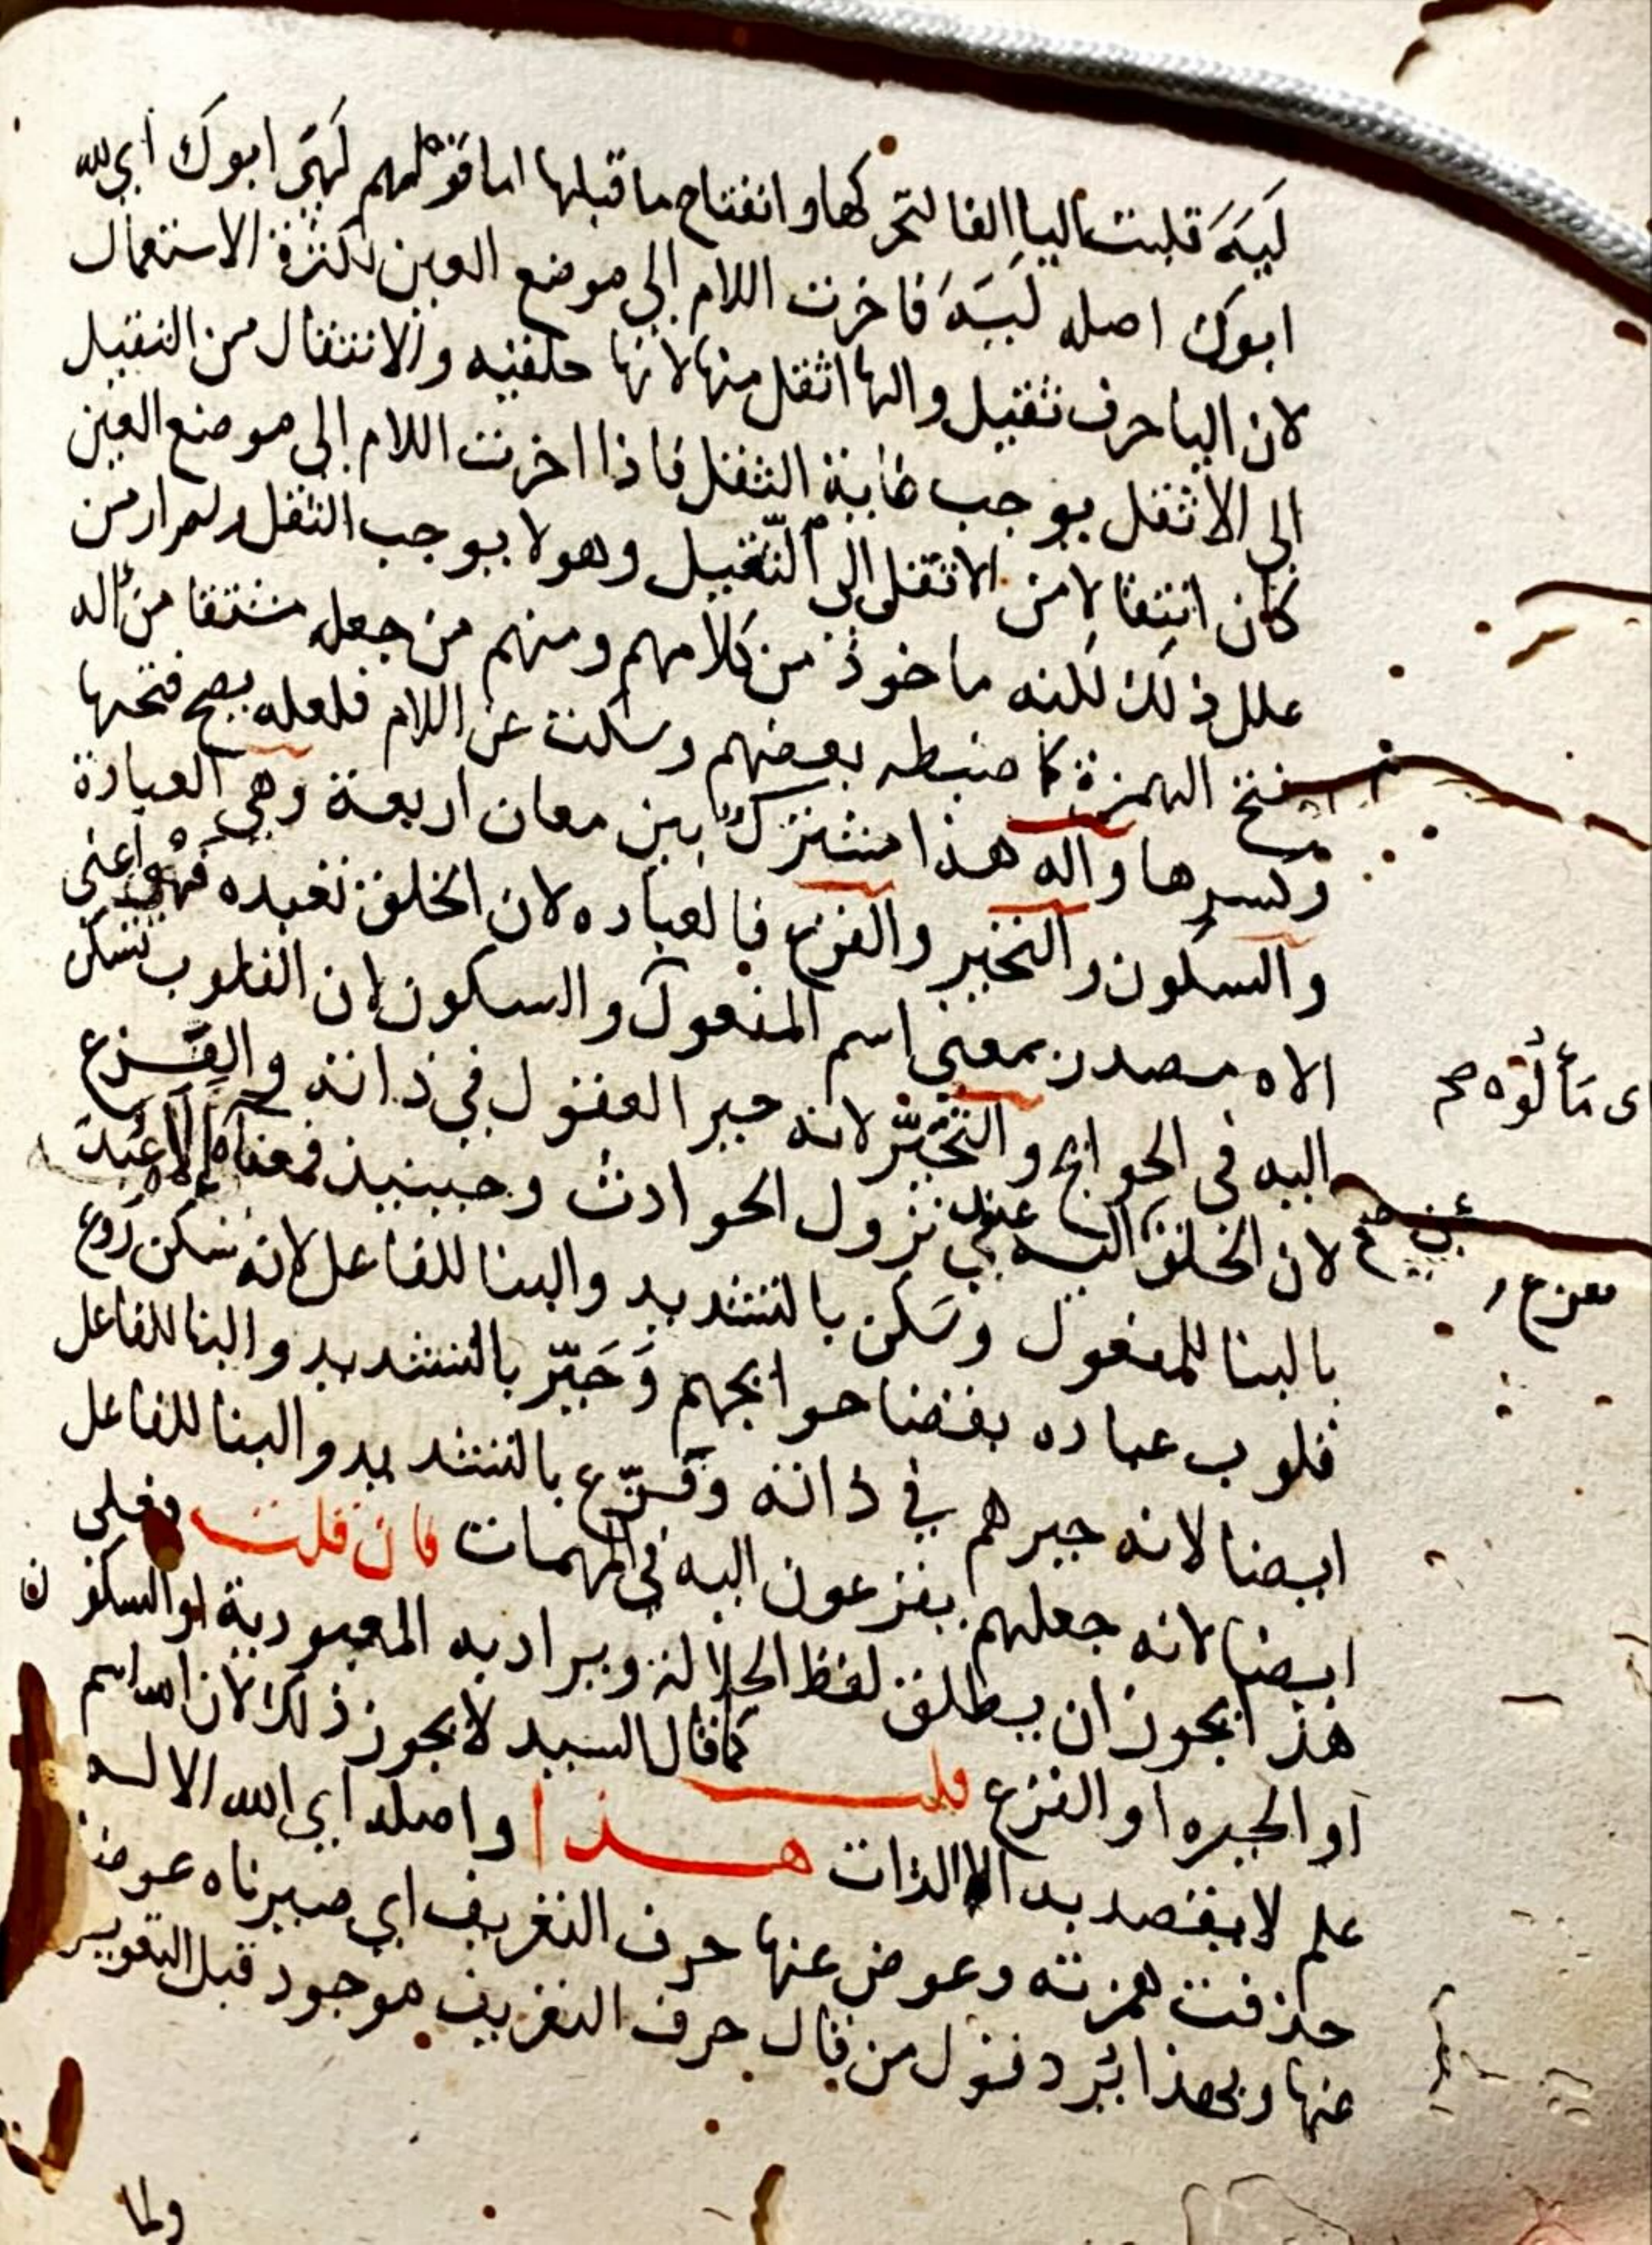 لَيَهَ قلبت اليا الفا لتحركها وانفتاح ما قبلها اما قولهم لَهَى ابوك اي لله
ابوك اصله لَيَهَ فاخرت اللام الى موضع العين لكثرة الاستعمال
لان اليا حرف ثقيل والها اثقل منها لانها حلقيه والانتقال من الثقيل
الى الاثقل يوجب غاية الثقل فاذا اخرت اللام الى موضع العين
كان انتقالا من الاثقل الى الثقيل وهو لا يوجب الثقل
علل ذلك لكنه ماخوذ من كلامهم ومنهم من جعله مشتقا من اله
بفتح الهمزة كما ضبطه بعضهم وسكت عن اللام فلعله يصح فتحها
وكسرها واله هذا مشترك بين معان اربعة وهي العبادة
والسكون والتحير والفزع فالعباده لان الخلق تعبده فهو اعني
الاه مصدر بمعنى اسم المفعول والسكون لان القلوب تسكن
اليه في الحوايج والتحيّر لانه حير العقول في ذاته والفزع
لان الخلق اليه عند نزول الحوادث وحينيذ فمعناه عُبِدَ
بالبنا للمفعول وسَكّن بالتشديد والبنا للفاعل لانه سكن روع
قلوب عباده بقضا حوايجهم وَحَيّر بالتشديد والبنا للفاعل
ايضا لانه حيرهم في ذاته وفَزّع بالتشديد والبنا للفاعل
ايضا لانه جعلهم يفزعون اليه في المهمات فان قلت فعلى
هذا يجوز ان يطلق لفظ الجلالة ويراد به المعبودية او السكون
او الحيره او الفزع قلت كما قال السيد لا يجوز ذلك لان الله اسم
علم لا يقصد به الا الذات هذا واصله اي الله الاله
حذفت همزته وعوض عنها حرف التعريف اي صيرناه عوضا
عنها وبهذا يُرد قول من قال حرف التعريف موجود قبل التعويض
ولما
اى مَألُوه صح